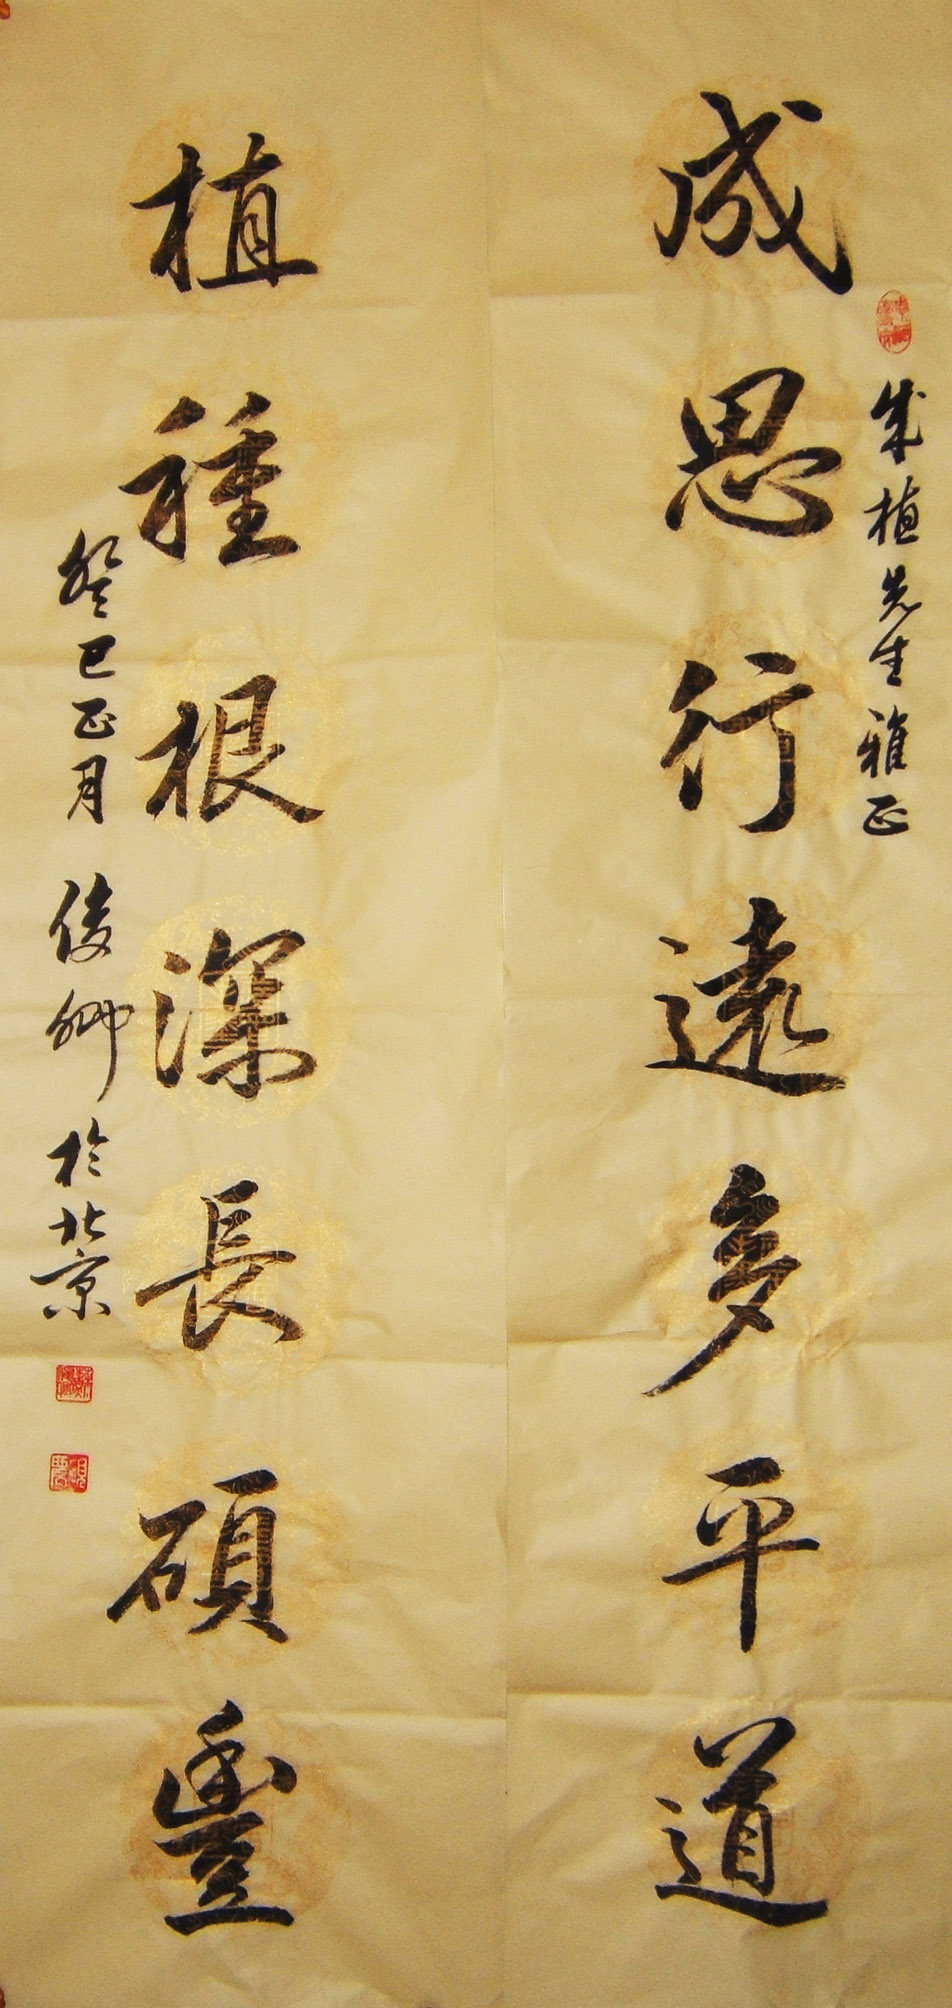 成植先生雅正
成思行遠多平道
植種根深長碩豐
癸巳正月俊卿於北京